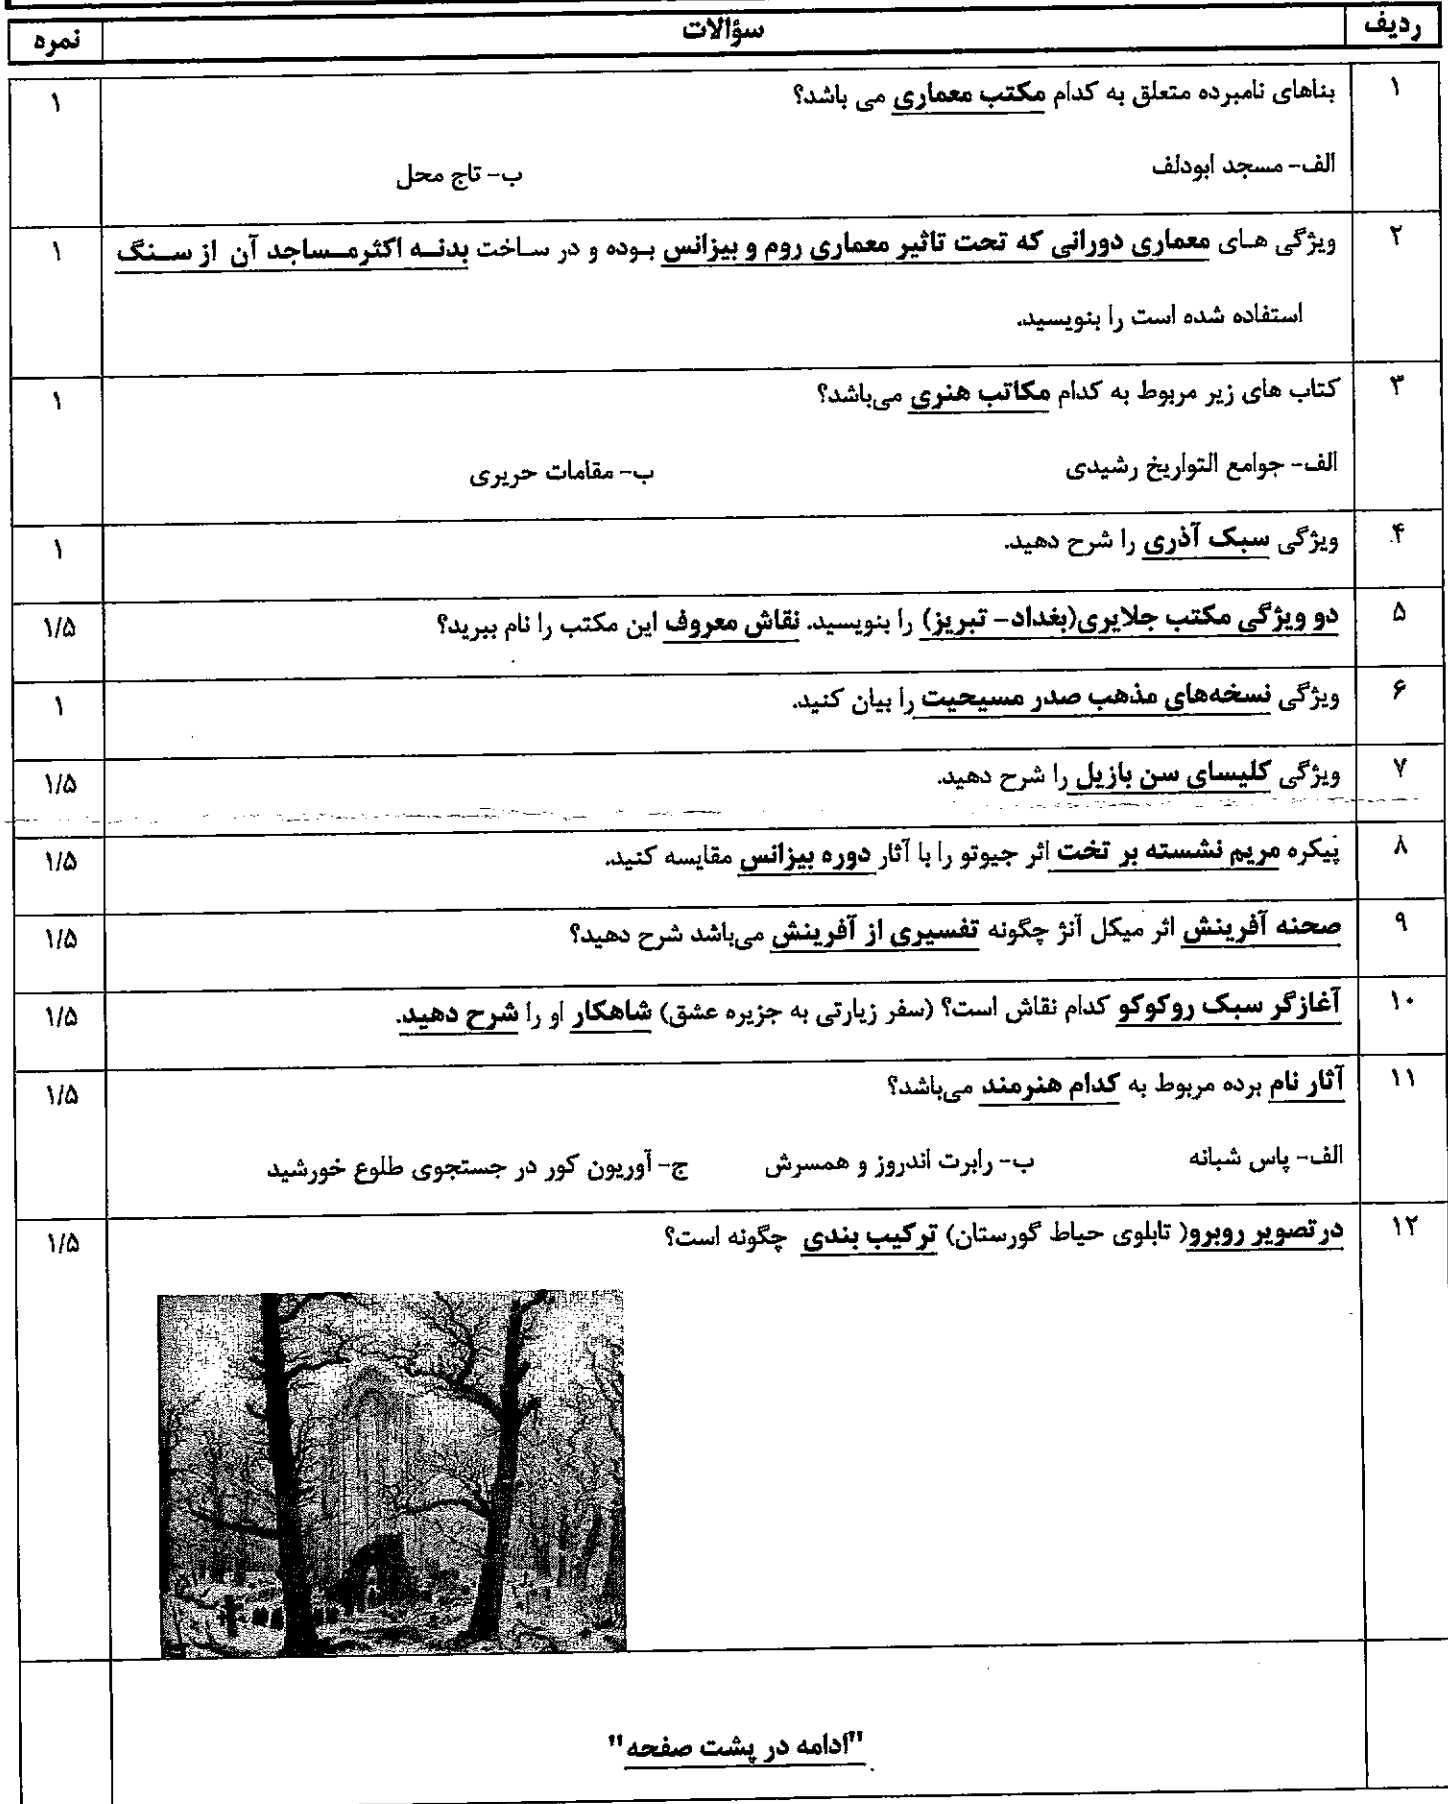 ردیف سؤالات نمره
۱ بناهای نامبرده متعلق به کدام مکتب معماری می باشد؟ ۱
الف- مسجد ابودلف ب- تاج محل
۲ ویژگی های معماری دورانی که تحت تاثیر معماری روم و بیزانس بوده و در ساخت بدنه اکثرمساجد آن از سنگ ۱
استفاده شده است را بنویسید.
۳ کتاب های زیر مربوط به کدام مکاتب هنری می‌باشد؟ ۱
الف- جوامع التواریخ رشیدی ب- مقامات حریری
۴ ویژگی سبک آذری را شرح دهید. ۱
۵ دو ویژگی مکتب جلایری(بغداد- تبریز) را بنویسید. نقاش معروف این مکتب را نام ببرید؟ ۱/۵
۶ ویژگی نسخه‌های مذهب صدر مسیحیت را بیان کنید. ۱
۷ ویژگی کلیسای سن بازیل را شرح دهید. ۱/۵
۸ پیکره مریم نشسته بر تخت اثر جیوتو را با آثار دوره بیزانس مقایسه کنید. ۱/۵
۹ صحنه آفرینش اثر میکل آنژ چگونه تفسیری از آفرینش می‌باشد شرح دهید؟ ۱/۵
۱۰ آغازگر سبک روکوکو کدام نقاش است؟ (سفر زیارتی به جزیره عشق) شاهکار او را شرح دهید. ۱/۵
۱۱ آثار نام برده مربوط به کدام هنرمند می‌باشد؟ ۱/۵
الف- پاس شبانه ب- رابرت اندروز و همسرش ج- آوریون کور در جستجوی طلوع خورشید
۱۲ در تصویر روبرو( تابلوی حیاط گورستان) ترکیب بندی چگونه است؟ ۱/۵
"ادامه در پشت صفحه"